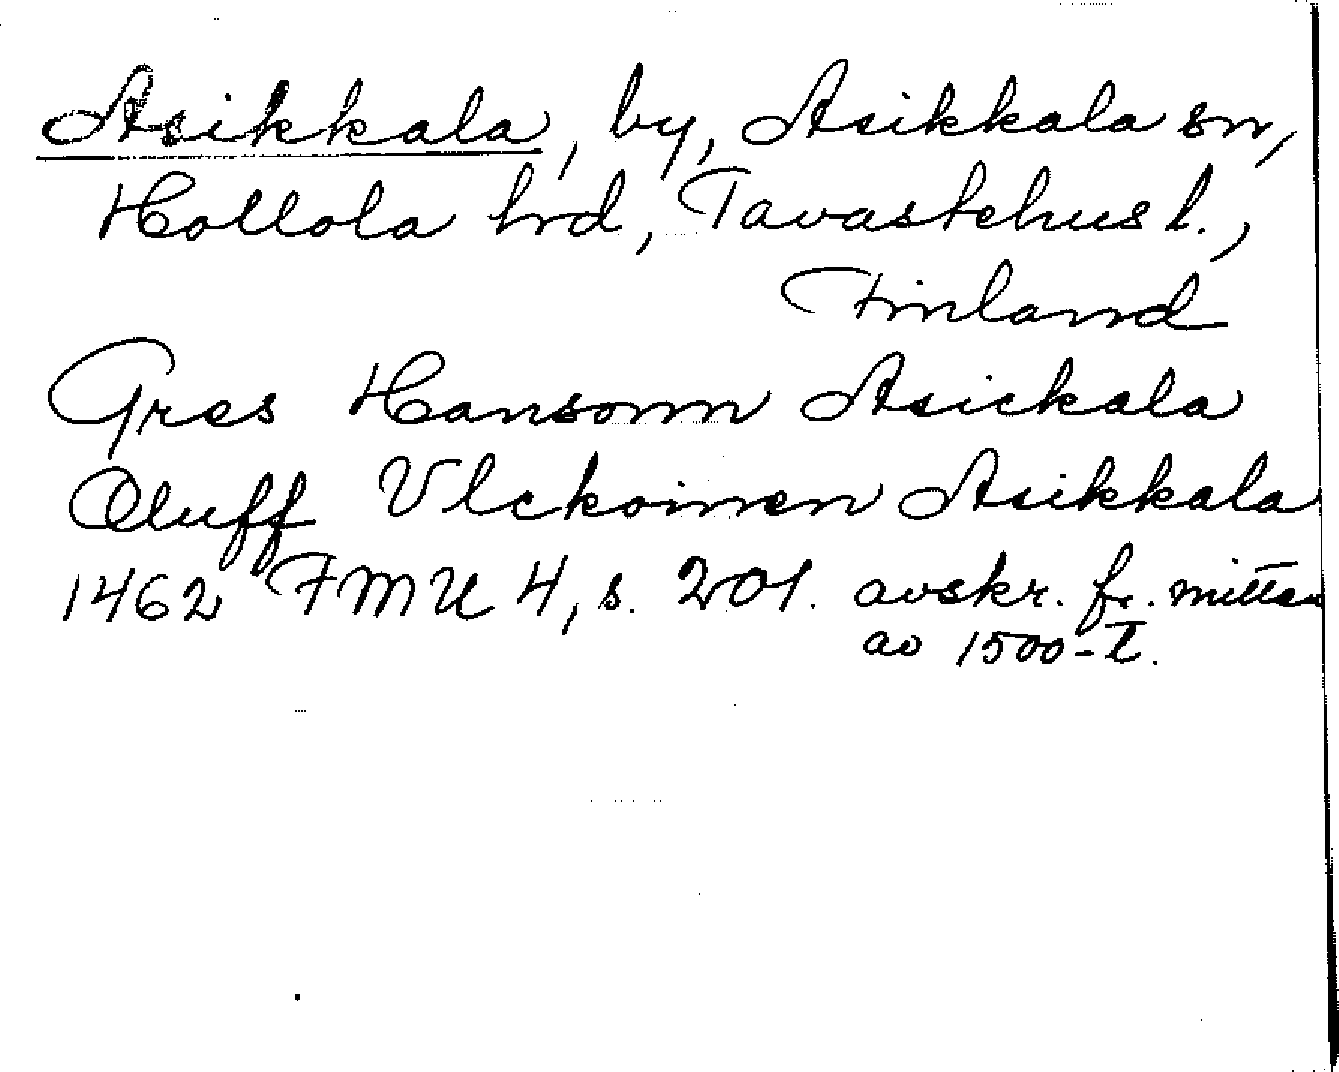 Asikkala, by, Asikkala sn,
Hollola hrd, Tavastehus l.,
Finland
Gres Hansonn Asickala
Oluff Vlckoinen Asikkala
1462 FMU 4, s. 201. avskr. fr. mitten
av 1500-t.